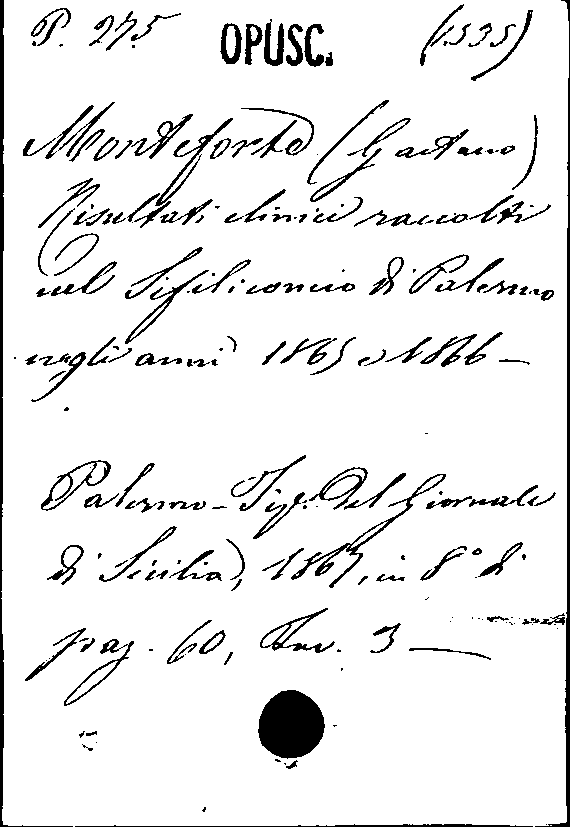 P. 275 OPUSC. (1535)
Monteforte (Gaetano)
Risultati clinici raccolti
nel Sifilicomio di Palermo
negli anni 1865 e 1866 —
Palermo - Tip. del Giornale
di Sicilia, 1867, in 8° di
pag. 60, Tav. 3 —